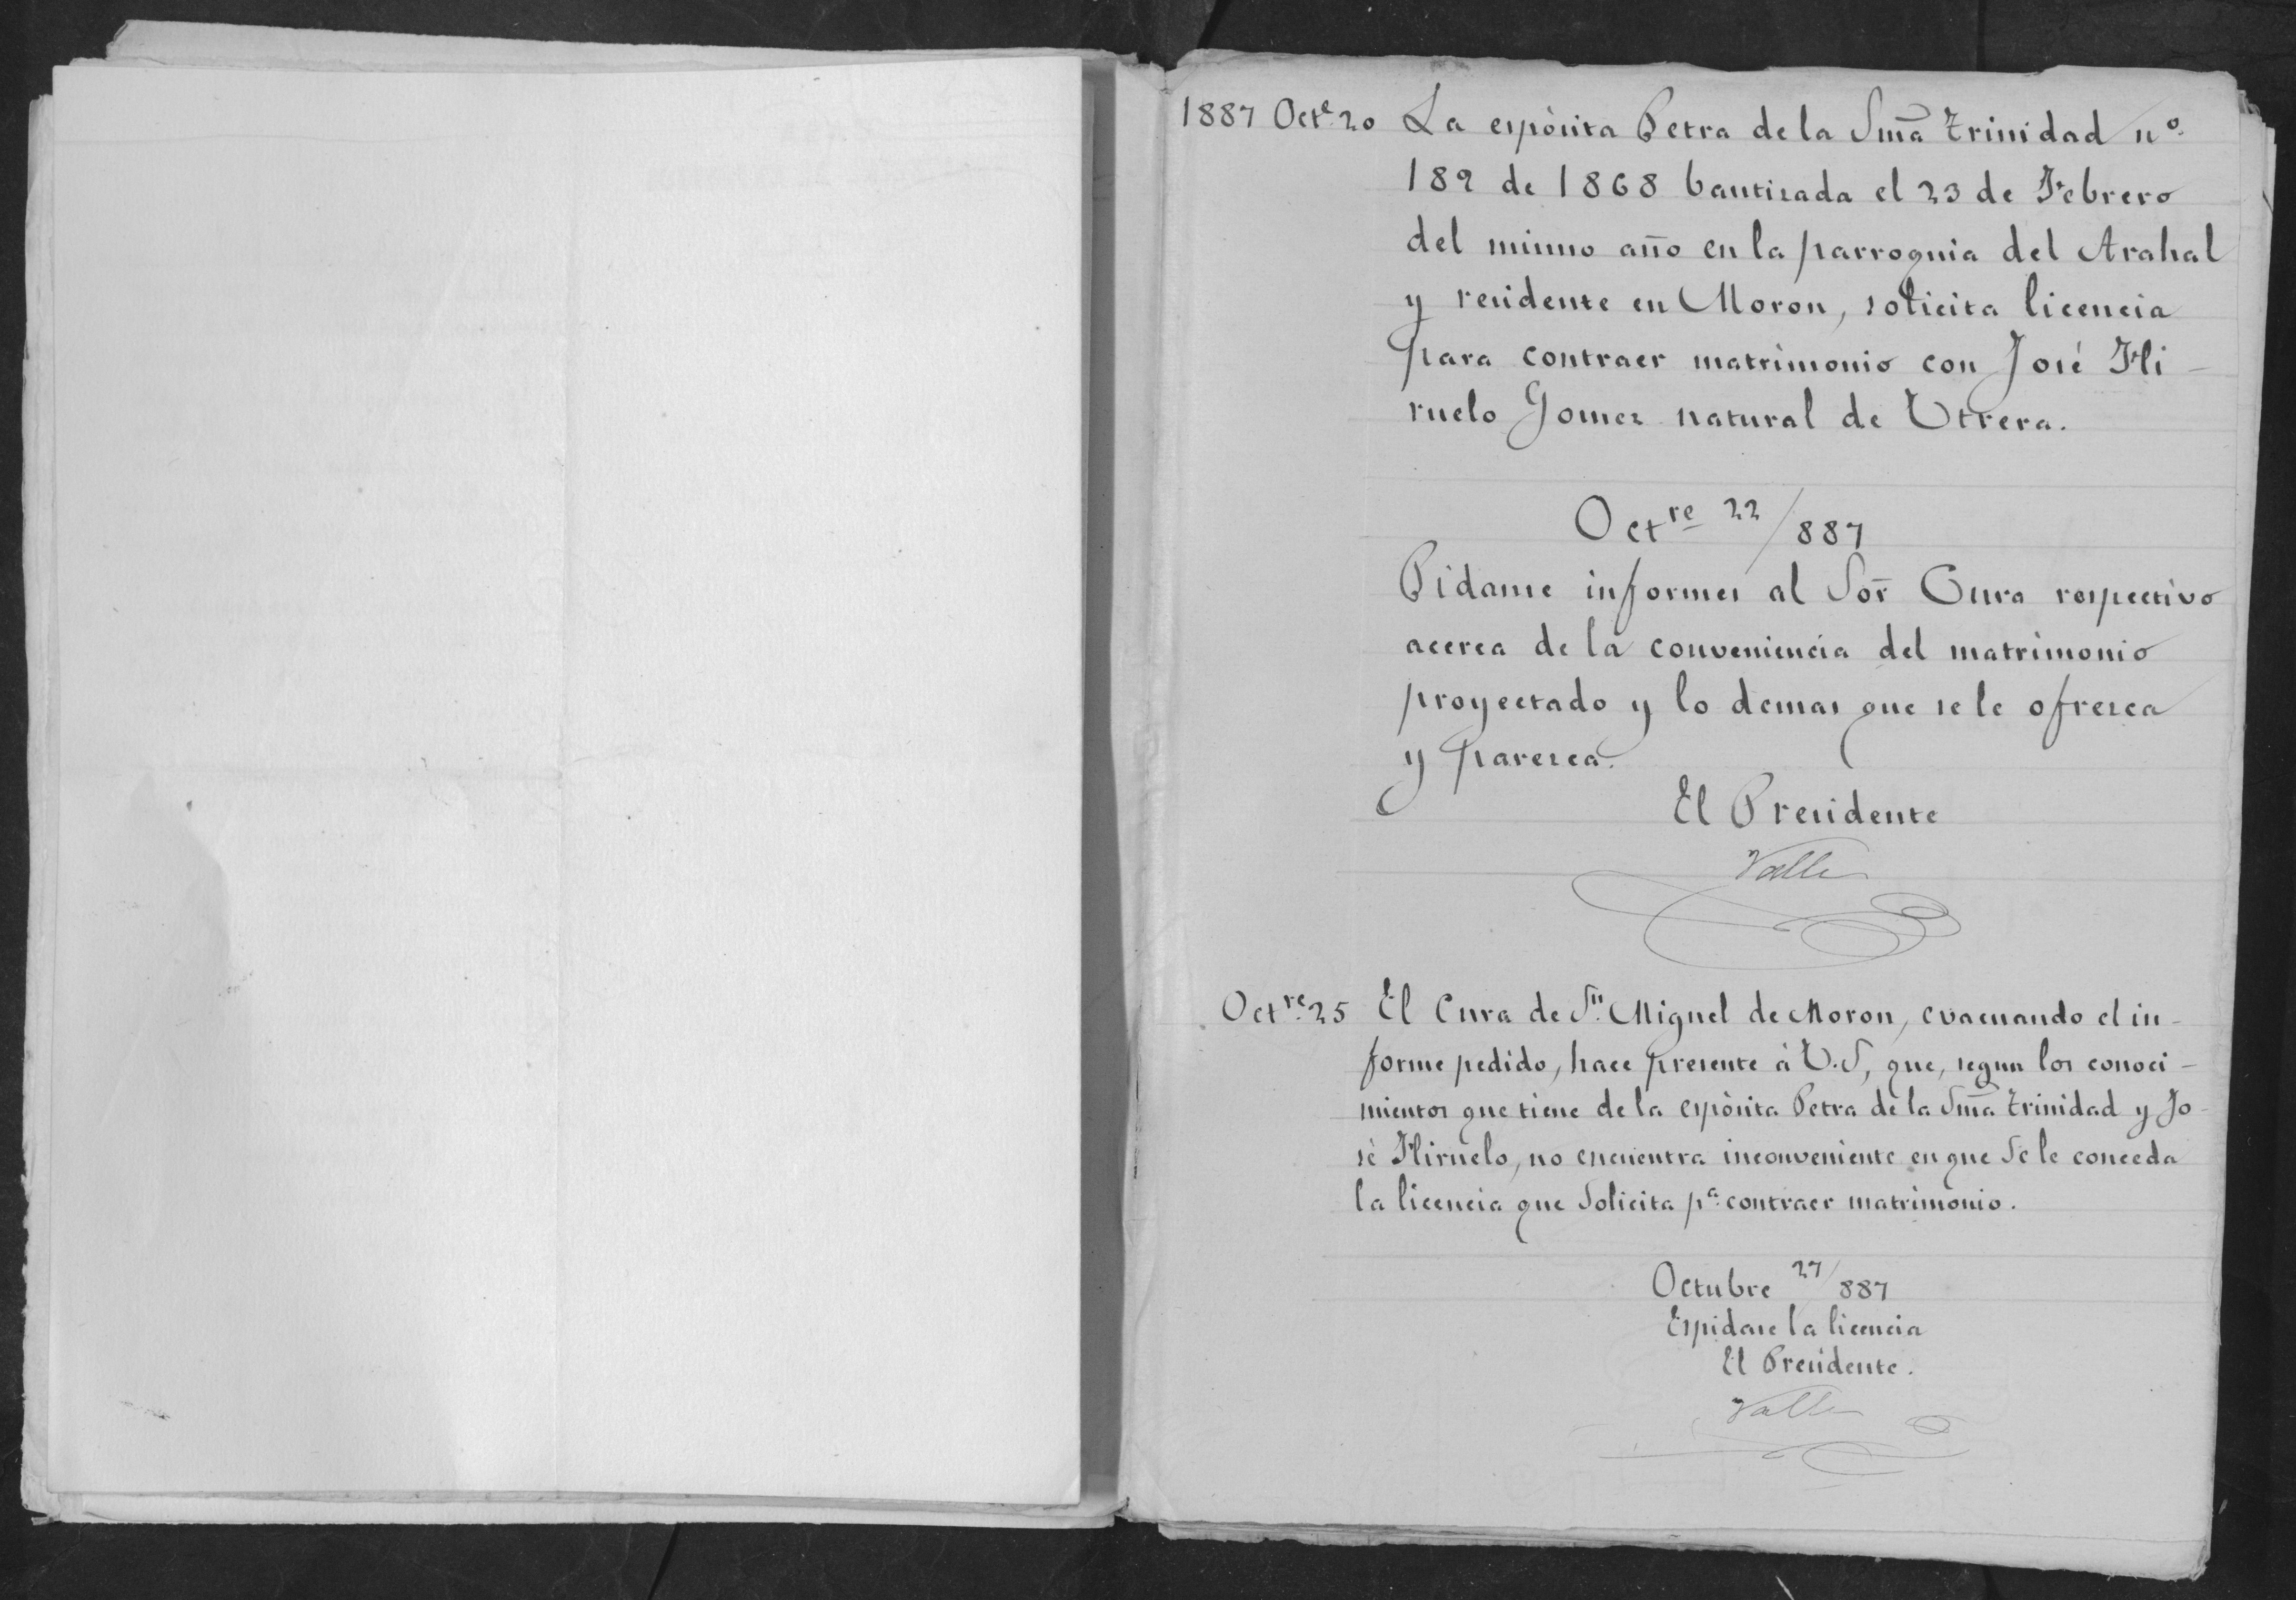 1887 Octe. 20 La espòsita Petra de la Sma Trinidad nº.
189 de 1868 bautizada el 23 de Febrero
del mismo año en la parroquia del Arahal
y residente en Moron, solicita licencia
para contraer matrimonio con José Hi-
ruelo Gomez natural de Utrera.
Octre 22/887
Pidanse informes al Sor Cura respectivo
acerca de la conveniencia del matrimonio
proyectado y lo demas que se le ofrezca
y parezca.
El Presidente
Valle
Octre. 25 El Cura de Sn. Miguel de Moron, evacuando el in-
forme pedido, hace presente à V.S, que, segun los conoci-
mientos que tiene de la espòsita Petra de la Sma Trinidad y Jo-
sè Hiruelo, no encuentra inconveniente en que se le conceda
la licencia que solicita pa. contraer matrimonio.
Octubre 27/887
Espidase la licencia
El Presidente.
Valle